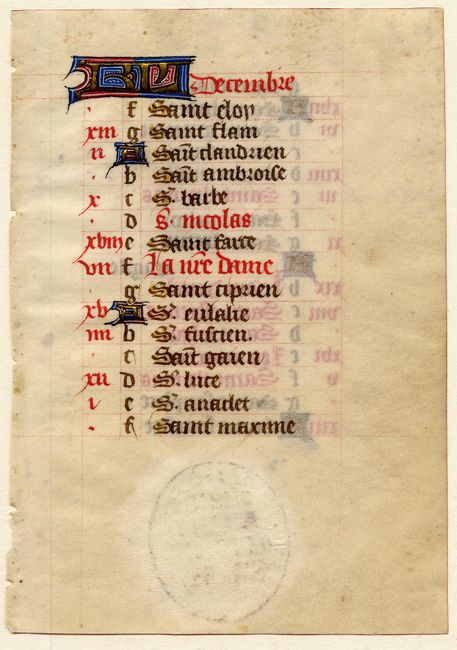 KL Decembre
f Saint eloy
xiii g Saint flam
ii A Sait clandrien
b Sait ambroise
x c S. barbe
d S. nicolas
xviii e Saint farce
vii f La nre dame
g Saint ciprien
xv A Se eulalie
iiii b S. fuscien.
c Sait gaien
xii d Se luce
i e S. anaclet
f Saint maxime